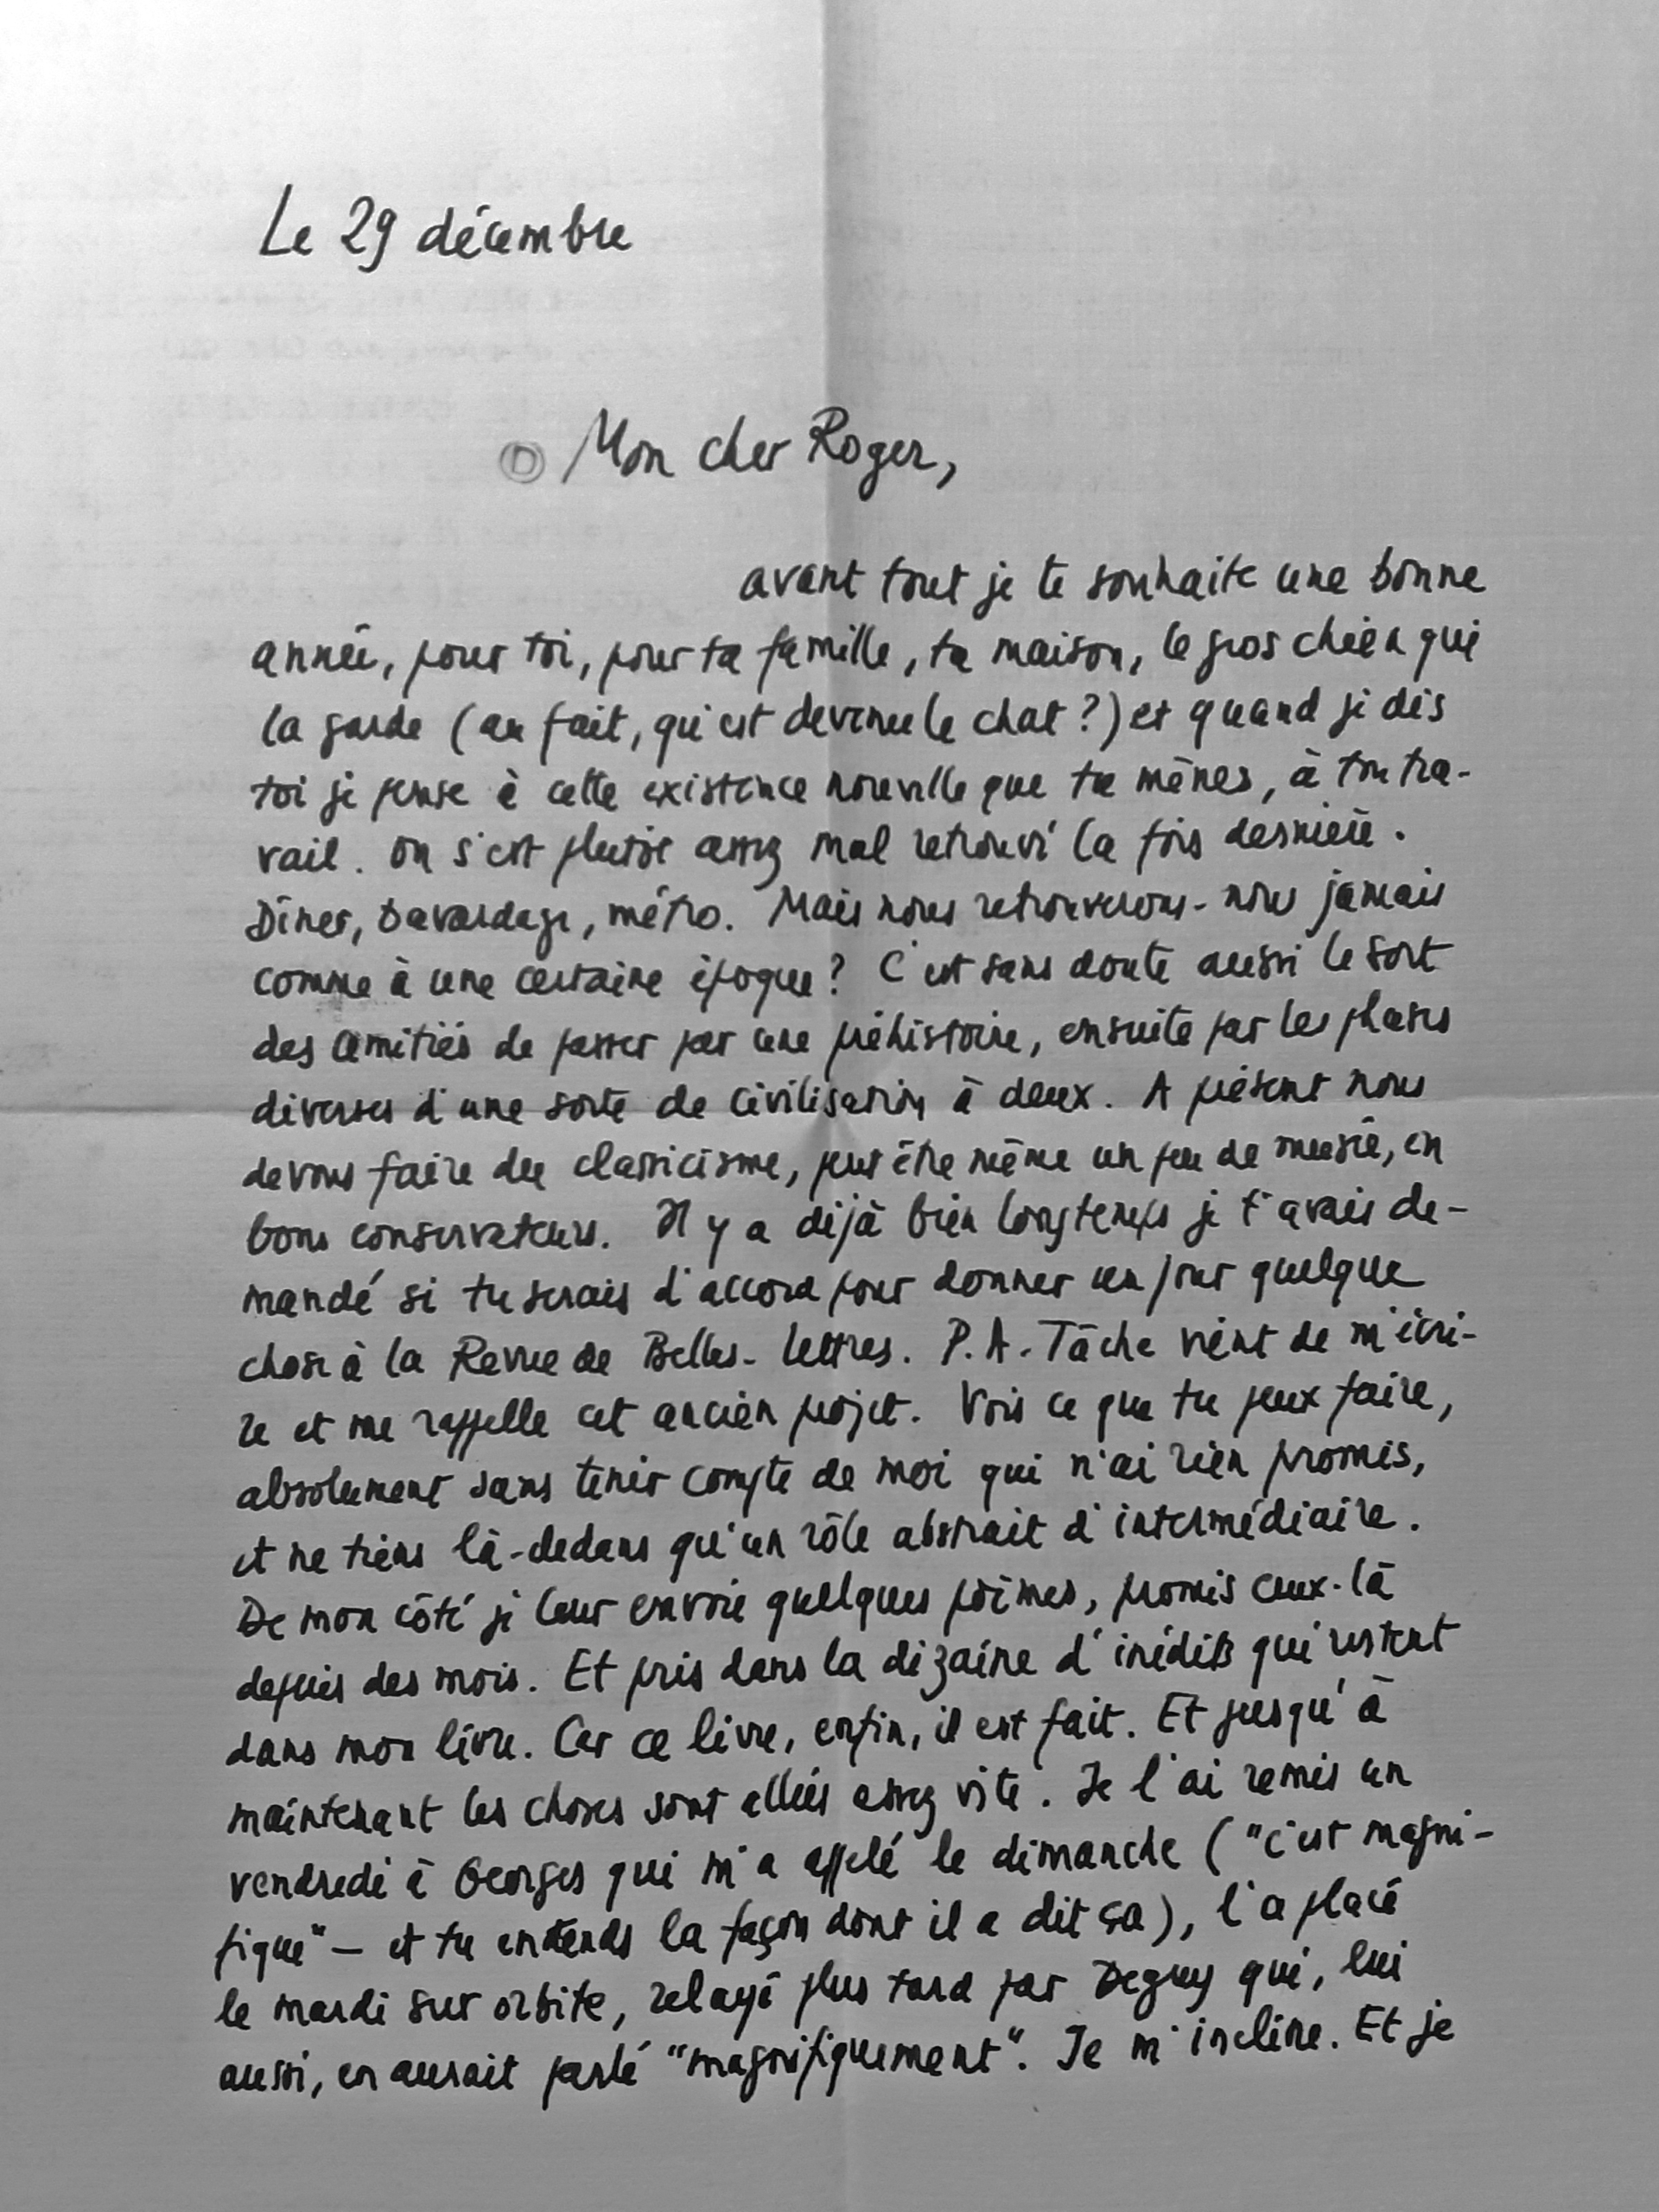 Le 29 décembre
Mon cher Roger,
avant tout je te souhaite une bonne
année, pour toi, pour ta famille, ta maison, le gros chien qui
la garde (au fait, qu'est devenu le chat ?) et quand je dis
toi je pense à cette existence nouvelle que tu mènes, à ton tra-
vail. On s'est plutôt assez mal retrouvé la fois dernière.
Dîner, bavardage, métro. Mais nous retrouverons-nous jamais
comme à une certaine époque ? C'est sans doute aussi le sort
des amitiés de passer par une préhistoire, ensuite par les phases
diverses d'une sorte de civilisation à deux. A présent nous
devons faire du classicisme, peut être même un peu de musée, en
bons conservateurs. Il y a déjà bien longtemps je t'avais de-
mandé si tu serais d'accord pour donner un jour quelque
chose à la Revue de Belles-Lettres. P.A. Tâche vient de m'écri-
re et me rappelle cet ancien projet. Vois ce que tu peux faire,
absolument sans tenir compte de moi qui n'ai rien promis,
et ne tiens là-dedans qu'un rôle abstrait d'intermédiaire.
De mon côté je leur envoie quelques poèmes, promis ceux-là
depuis des mois. Et pris dans la dizaine d'inédits qui restent
dans mon livre. Car ce livre, enfin, il est fait. Et jusqu'à
maintenant les choses sont allées assez vite. Je l'ai remis un
vendredi à Georges qui m'a appelé le dimanche ("c'est magni-
fique" — et tu entends la façon dont il a dit ça), l'a placé
le mardi sur orbite, relayé plus tard par Deguy qui, lui
aussi, en aurait parlé "magnifiquement". Je m'incline. Et je